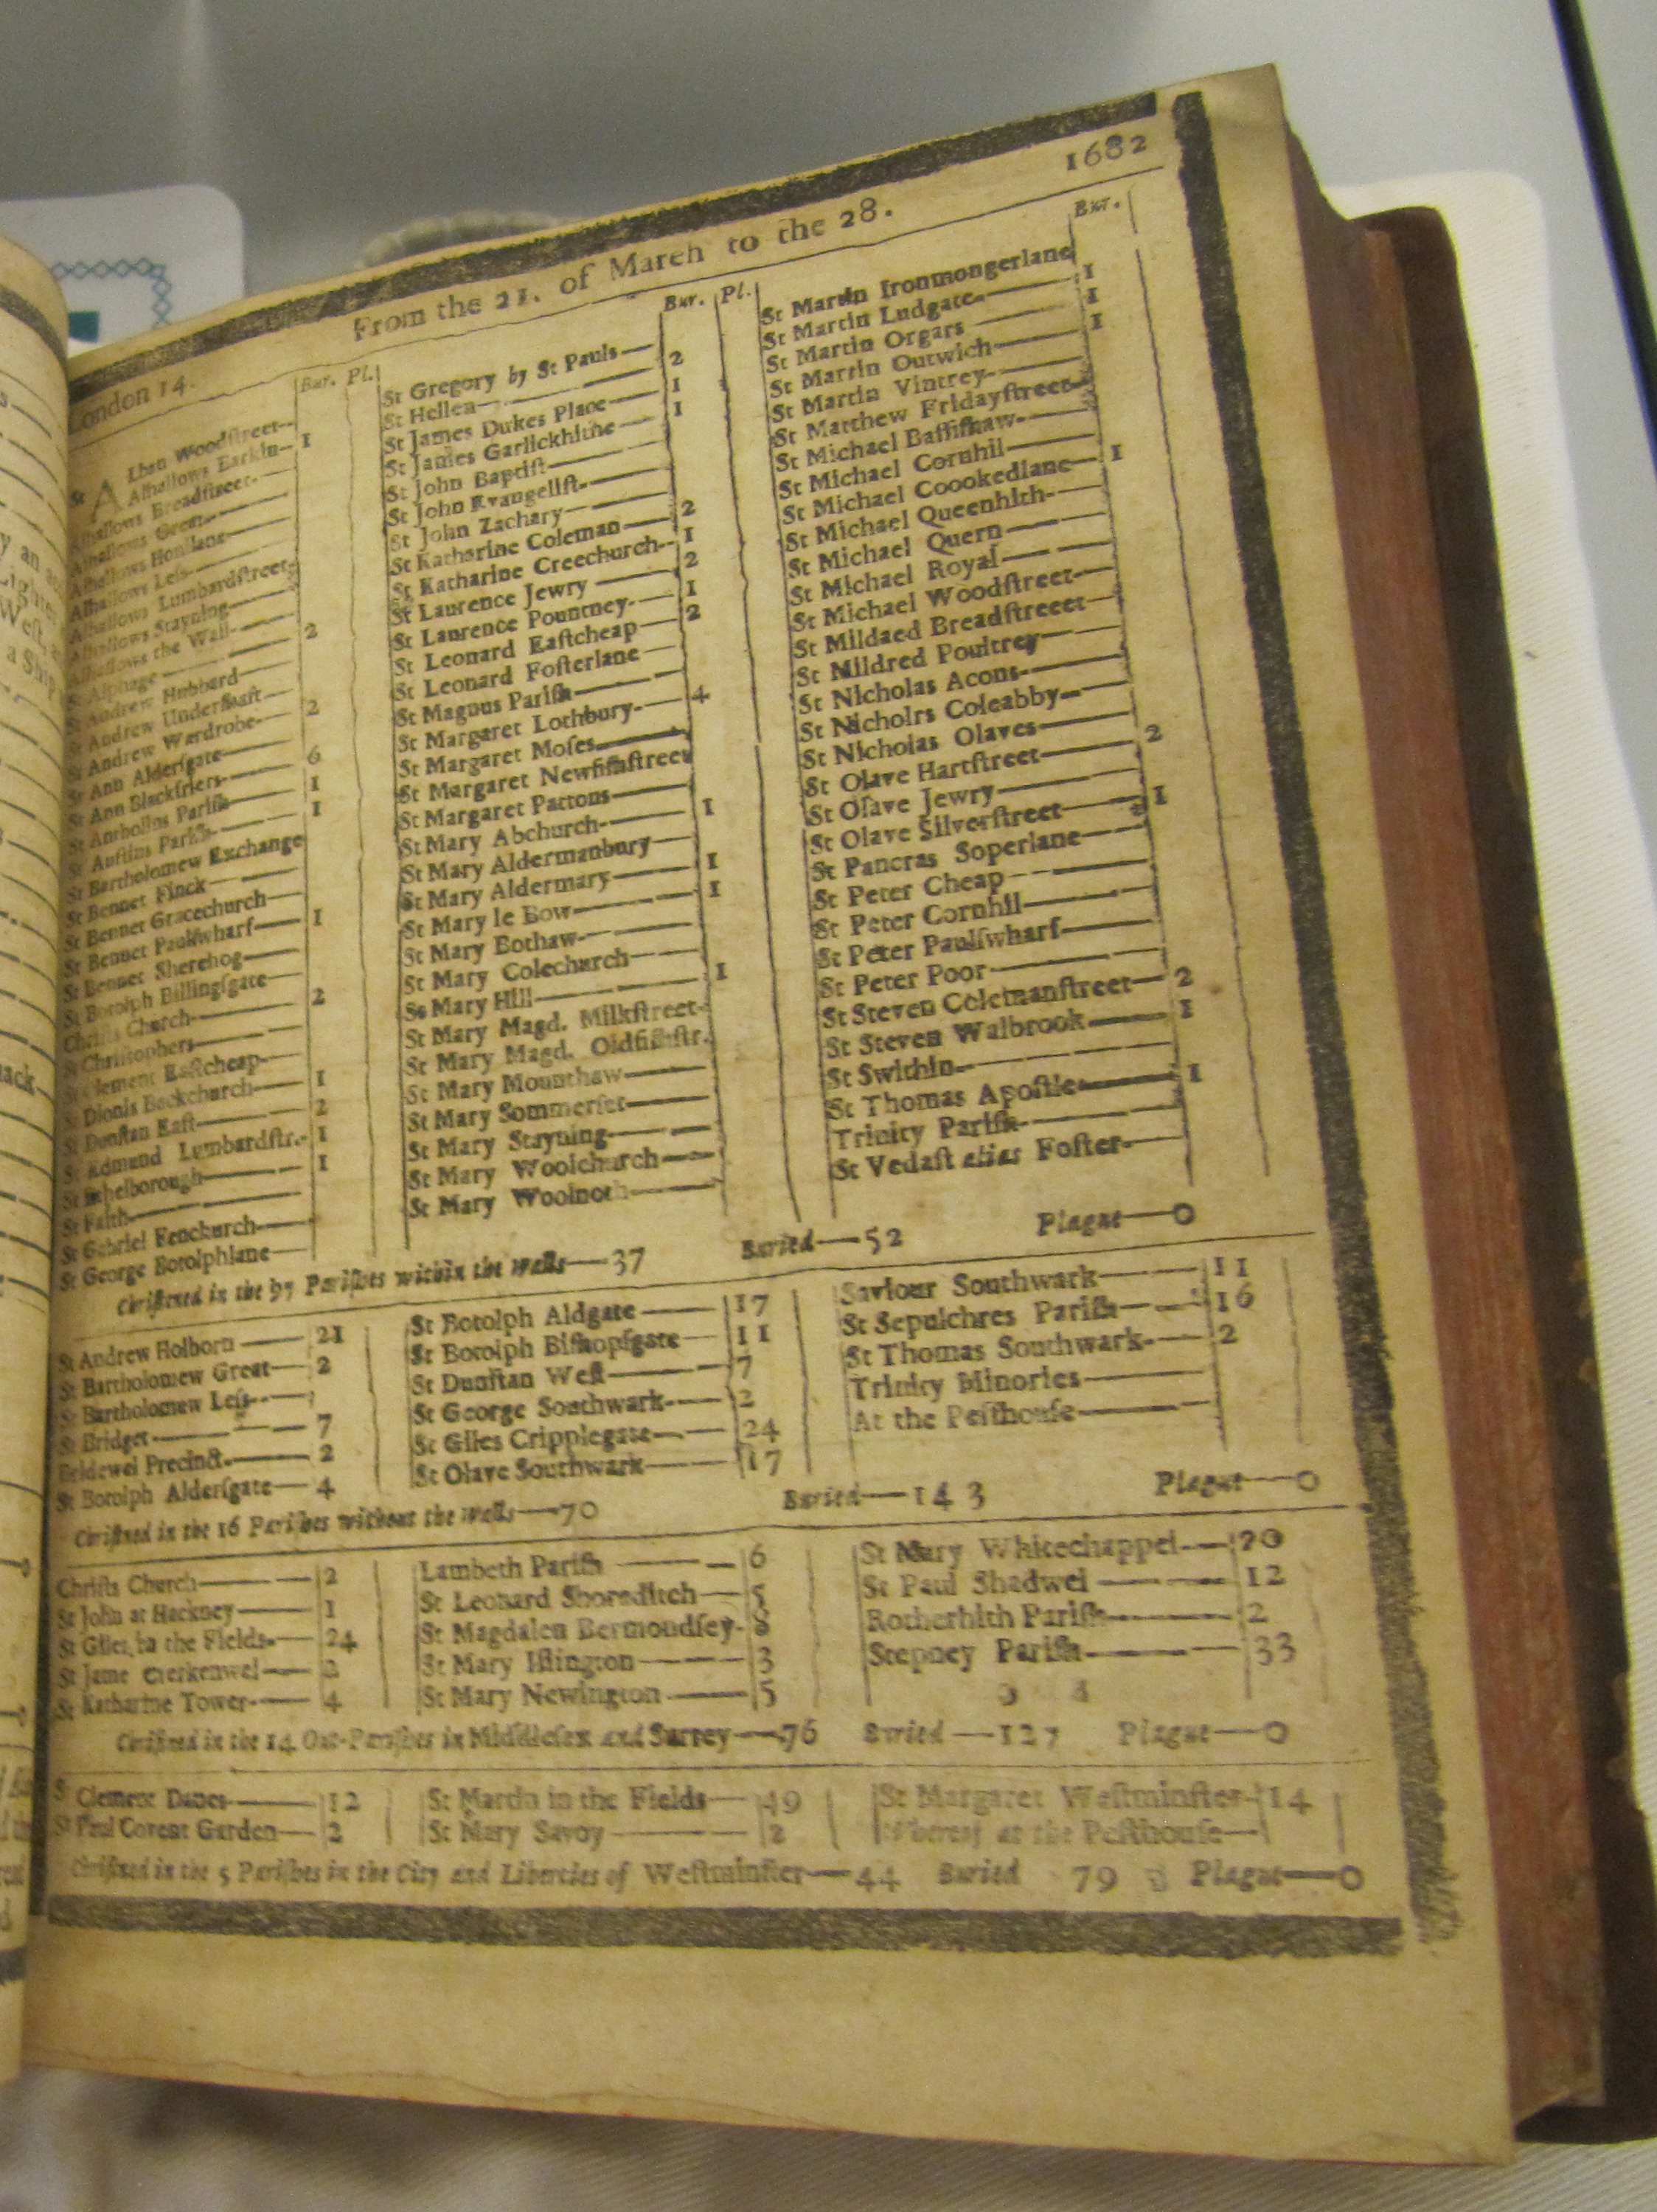 London 14.
From the 21. of March to the 28.
1682
Bur. Pl.
St Alban Woodſtreet
Alhallows Barkin 1
Alhallows Breadſtreet
Alhallows Great
Alhallows Honilane
Alhallows Leſs
Alhallows Lumbardſtreet
Alhallows Stayning
Alhallows the Wall 2
St Alphage
St Andrew Hubbard
St Andrew Underſhaft
St Andrew Wardrobe 2
St Ann Alderſgate
St Ann Blackfriers 6
St Antholins Pariſh 1
St Auſtins Pariſh 1
St Bartholomew Exchange
St Bennet Finck
St Bennet Gracechurch
St Bennet Paulſwharf 1
St Bennet Sherehog
St Botolph Billingſgate
Chriſts Church 2
St Chriſtophers
St Clement Eaſtcheap
St Dionis Backchurch 1
St Dunſtan Eaſt 2
St Edmund Lumbardſtr. 1
St Ethelborough 1
St Faith
St Gabriel Fenchurch
St George Botolphlane
Bur. Pl.
St Gregory by St Pauls
St Hellen 2
St James Dukes Place 1
St James Garlickhithe 1
St John Baptiſt
St John Evangeliſt
St John Zachary
St Katharine Coleman 2
St Katharine Creechurch 1
St Laurence Jewry 2
St Laurence Pountney 1
St Leonard Eaſtcheap 2
St Leonard Foſterlane
St Magnus Pariſh
St Margaret Lothbury 4
St Margaret Moſes
St Margaret Newfiſhſtreet
St Margaret Pattons
St Mary Abchurch 1
St Mary Aldermanbury
St Mary Aldermary 1
St Mary le Bow 1
St Mary Bothaw
St Mary Colechurch
St Mary Hill 1
St Mary Magd. Milkſtreet
St Mary Magd. Oldfiſhſtr.
St Mary Mounthaw
St Mary Sommerſet
St Mary Stayning
St Mary Woolchurch
St Mary Woolnoth
Bur.
St Martin Ironmongerlane
St Martin Ludgate 1
St Martin Orgars 1
St Martin Outwich 1
St Martin Vintrey
St Matthew Fridayſtreet
St Michael Baſſiſhaw
St Michael Cornhil
St Michael Coookedlane 1
St Michael Queenhith
St Michael Quern
St Michael Royal
St Michael Woodſtreet
St Mildaed Breadſtreeet
St Mildred Poultrey
St Nicholas Acons
St Nicholrs Coleabby
St Nicholas Olaves
St Olave Hartſtreet 2
St Olave Jewry
St Olave Silverſtreet 1
St Pancras Soperlane
St Peter Cheap
St Peter Cornhil
St Peter Paulſwharf
St Peter Poor
St Steven Colemanſtreet 2
St Steven Walbrook 1
St Swithin
St Thomas Apoſtle 1
Trinity Pariſh
St Vedaſt alias Foſter
Chriſtned in the 97 Pariſhes within the walls—37 Buried—52 Plague—0
St Andrew Holborn 21
St Bartholomew Great 2
St Bartholomew Leſs
St Bridget 7
Bridewel Precinct 2
St Botolph Alderſgate 4
St Botolph Aldgate 17
St Botolph Biſhopſgate 11
St Dunſtan Weſt 7
St George Southwark 2
St Giles Cripplegate 24
St Olave Southwark 17
Saviour Southwark 11
St Sepulchres Pariſh 16
St Thomas Southwark 2
Trinity Minories
At the Peſthouſe
Chriſtned in the 16 Pariſhes without the walls—70 Buried—143 Plague—0
Chriſts Church 2
St John at Hackney 1
St Giles in the Fields 24
St Jame Clerkenwel
St Katharine Tower 4
Lambeth Pariſh 6
St Leonard Shoreditch 5
St Magdalen Bermondſey 8
St Mary Iſlington 3
St Mary Newington 5
St Mary Whitechappel 20
St Paul Shadwel 12
Rotherhith Pariſh 2
Stepney Pariſh 33
Chriſtned in the 14 Out-Pariſhes in Middleſex and Surrey—76 Buried—127 Plague—0
St Clement Danes 12
St Paul Covent Garden 2
St Martin in the Fields 49
St Mary Savoy 2
St Margaret Weſtminſter 14
Whereof at the Peſthouſe
Chriſtned in the 5 Pariſhes in the City and Liberties of Weſtminſter—44 Buried 79 Plague—0